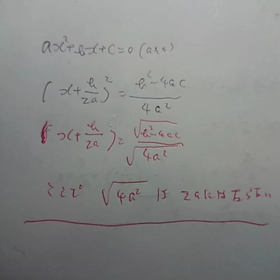 ax²+bx+c=0 (a≠0)
(x+b/2a)²=b²-4ac/4a²
(x+b/2a)=√b²-4ac/√4a²
ここで √4a² は 2aにはならない